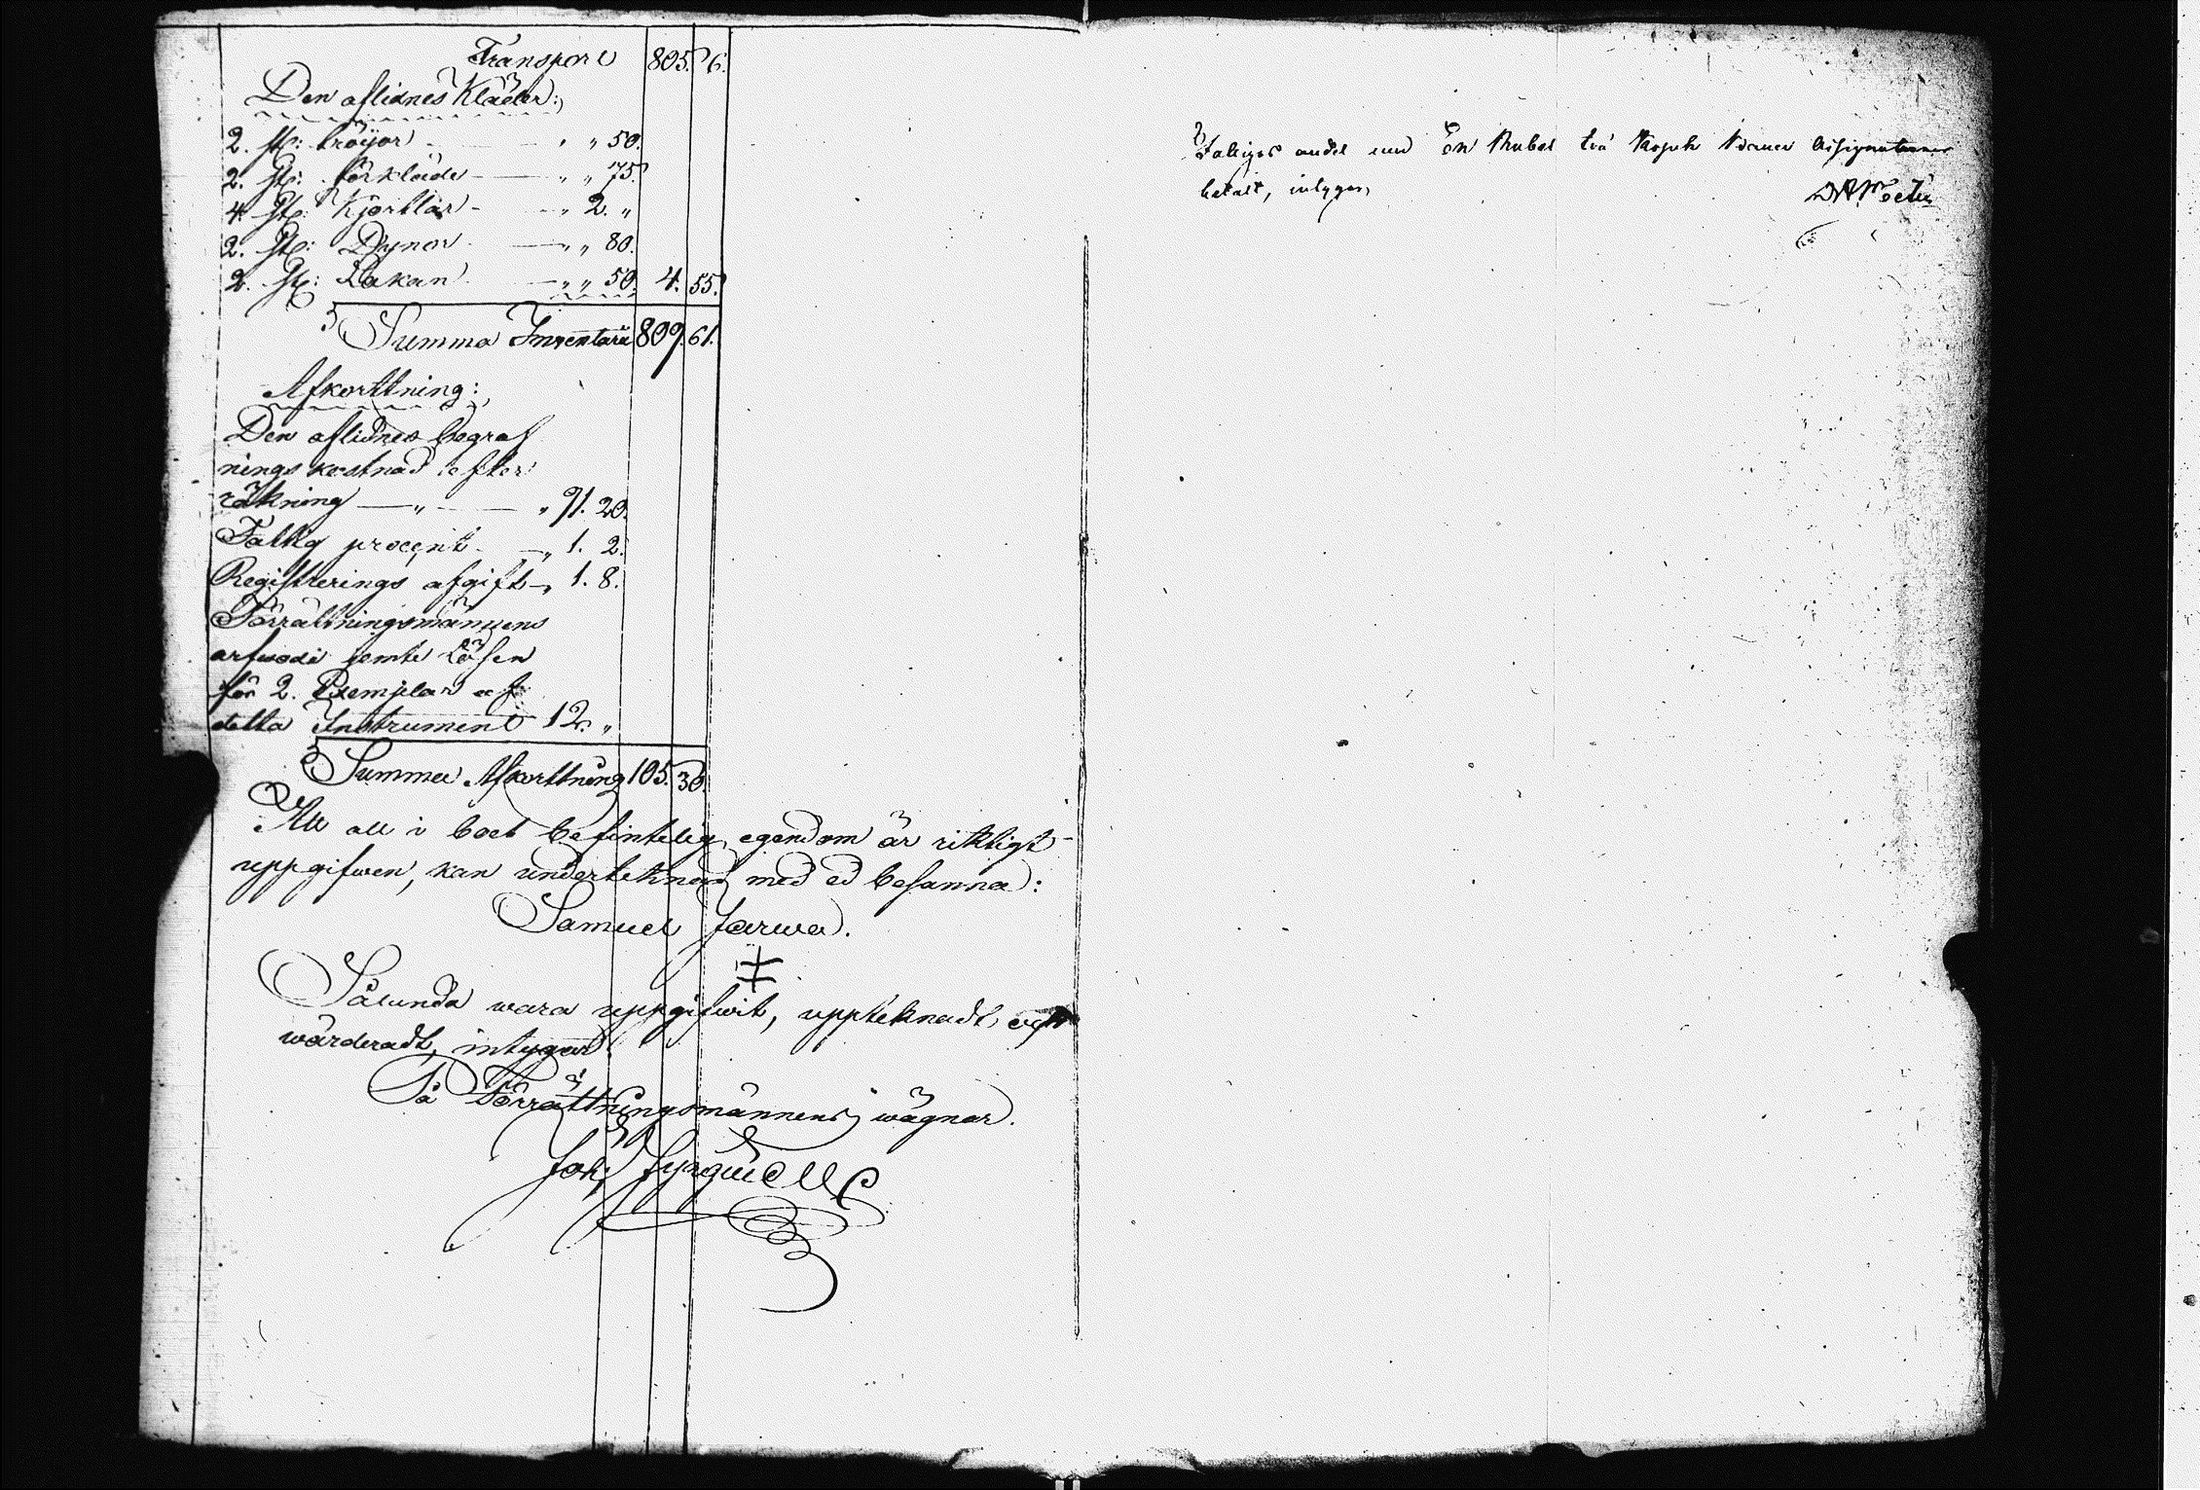 Transport 805. 6.
Den aflidnes Kläder:
2. st: tröijor " " 50.
2. st: förkläde " " 75.
4. st: Kjortlar " 2. "
2. st: Dynor " " 80.
2. st: Lakan " " 50. 4. 55.
Summa Inventarii 809. 61.
Afkorttning:
Den aflidnes begraf
nings kostnad efter
räkning " " 91. 20.
Fattig procent " 1. 2.
Registrerings afgift " 1. 8.
Förrättningsmännens
arfwode jemte Lösen
för 2. Exemplar af
detta Instrument 12. "
Summa Afkorttning 105. 30.
Att all i boet befintelig egendom är riktigt
uppgifwen, kan underteknad med ed besanna:
Samuel Jarwa.
Sålunda wara uppgifwit, uppteknadt och
wärderadt, intygar
På Förrättningsmännens wägnar.
Joh:
Fattiges andel med En Rubel två Kopek Banco Assignationer
betalt, intygar,